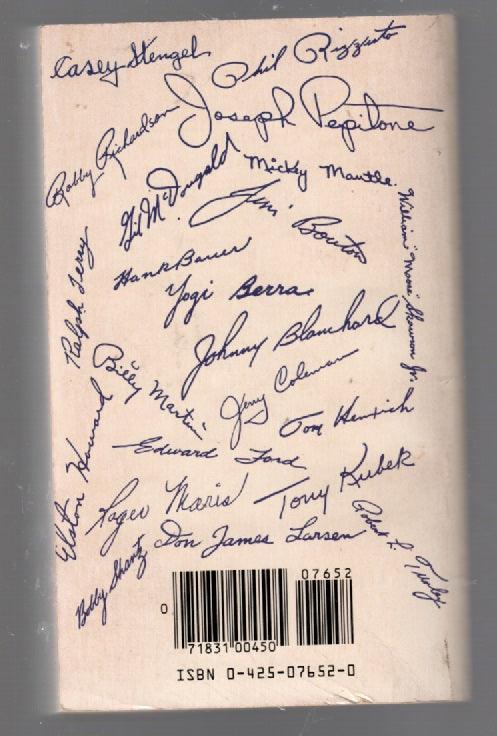 Casey Stengel
Phil Rizzuto
Joseph Pepitone
Bobby Richardson
Gil McDougald
Mickey Mantle
Jim Bouton
William "Moose" Skowron Jr.
Hank Bauer
Ralph Terry
Yogi Berra
Johnny Blanchard
Billy Martin
Jerry Coleman
Tom Henrich
Elston Howard
Edward Ford
Roger Maris
Tony Kubek
Don James Larsen
Robert L. Turley
Bobby Shantz
07652
0
71831 00450
ISBN 0-425-07652-0